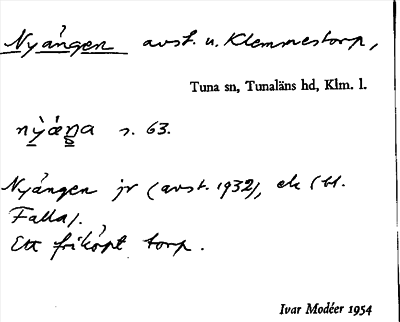 Nyången avst. u. Klemmestorp,
Tuna sn, Tunaläns hd, Klm. l.
nỳáŋa s. 63.
Nyången jr (avst. 1932), ek (bl.
Falla).
Ett friköpt torp.
Ivar Modéer 1954